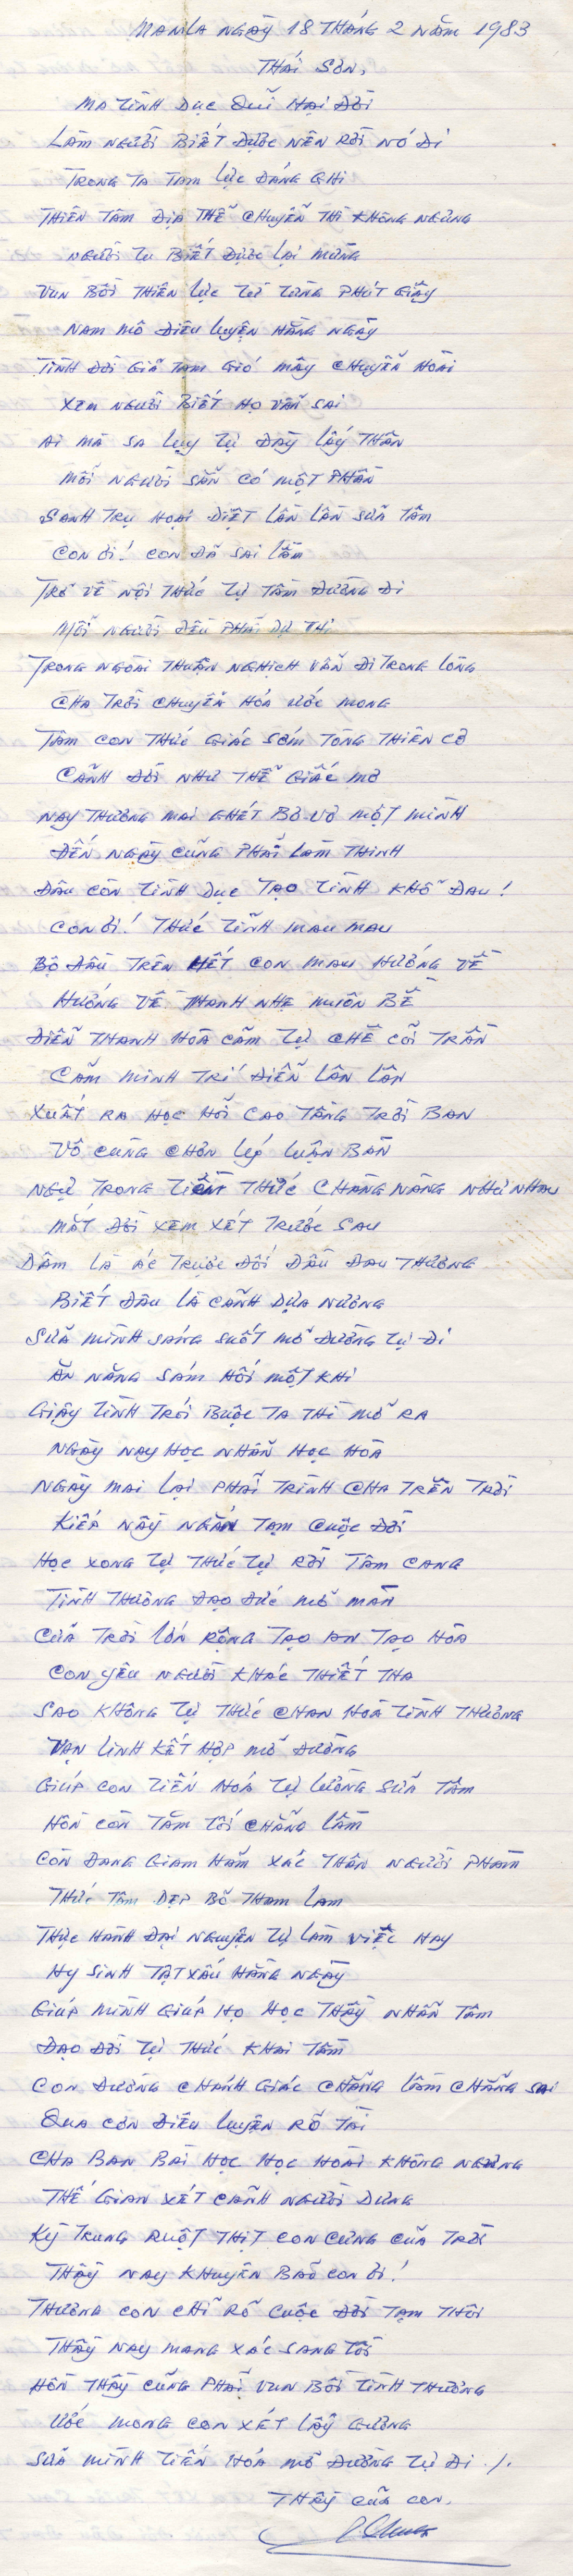 MANILA NGÀY 18 THÁNG 2 NĂM 1983
THÁI SƠN,
MA TÌNH DỤC QUỈ HẠI ĐỜI
LÀM NGƯỜI BIẾT ĐƯỢC NÊN RỜI NÓ ĐI
TRONG TA TAM LỰC ĐÁNG GHI
THIÊN TÂM ĐỊA THỂ CHUYỂN THÌ KHÔNG NGỪNG
NGƯỜI TU BIẾT ĐƯỢC LẠI MỪNG
VUN BỒI THIÊN LỰC TỪ TỪNG PHÚT GIÂY
NAM MÔ ĐIÊU LUYỆN HẰNG NGÀY
TÌNH ĐỜI GIẢ TẠM GIÓ MÂY CHUYỂN HOÀI
XEM NGƯỜI BIẾT HỌ VẪN SAI
AI MÀ SA LỤY TỰ ĐÀY LẤY THÂN
MỖI NGƯỜI SẴN CÓ MỘT PHẦN
SANH TRỤ HOẠI DIỆT LẦN LẦN SỬA TÂM
CON ƠI! CON ĐÃ SAI LẦM
TRỞ VỀ NỘI THỨC TỰ TẦM ĐƯỜNG ĐI
MỖI NGƯỜI ĐỀU PHẢI DỰ THI
TRONG NGOÀI THUẬN NGHỊCH VẪN ĐI TRONG LÒNG
CHA TRỜI CHUYỂN HÓA ƯỚC MONG
TÂM CON THỨC GIÁC SỚM TÒNG THIÊN CƠ
CẢNH ĐỜI NHƯ THỂ GIẤC MƠ
NAY THƯƠNG MAI GHÉT BƠ VƠ MỘT MÌNH
ĐẾN NGÀY CŨNG PHẢI LÀM THINH
ĐÂU CÒN TÌNH DỤC TẠO TÌNH KHỔ ĐAU!
CON ƠI! THỨC TỈNH MAU MAU
BỘ ĐẦU TRÊN HẾT CON MAU HƯỚNG VỀ
HƯỚNG VỀ THANH NHẸ MUÔN BỀ
ĐIỂN THANH HÒA CẢM TỰ CHÊ CÕI TRẦN
CẢM MINH TRÍ ĐIỂN LẦN LẦN
XUẤT RA HỌC HỎI CAO TẦNG TRỜI BAN
VÔ CÙNG CHƠN LÝ LUẬN BÀN
NGỰ TRONG TIỀM THỨC CHÀNG NÀNG NHƯ NHAU
MẮT ĐỜI XEM XÉT TRƯỚC SAU
DÂM LÀ ÁC TRƯỢC ĐỐI ĐẦU ĐAU THƯƠNG
BIẾT ĐÂU LÀ CẢNH DỰA NƯƠNG
SỬA MÌNH SÁNG SUỐT MỞ ĐƯỜNG TỰ ĐI
ĂN NĂNG SÁM HỐI MỘT KHI
GIÂY TÌNH TRÓI BUỘC TA THÌ MỞ RA
NGÀY NAY HỌC NHẪN HỌC HÒA
NGÀY MAI LẠI PHẢI TRÌNH CHA TRÊN TRỜI
KIẾP NẦY NGẮN TẠM CUỘC ĐỜI
HỌC XONG TỰ THỨC TỰ RỜI TÂM CANG
TÌNH THƯƠNG ĐẠO ĐỨC MỞ MÀN
CỦA TRỜI LỚN RỘNG TẠO AN TẠO HÒA
CON YÊU NGƯỜI KHÁC THIẾT THA
SAO KHÔNG TỰ THỨC CHAN HOÀ TÌNH THƯƠNG
VẠN LINH KẾT HỢP MỞ ĐƯỜNG
GIÚP CON TIẾN HOÁ TỰ LƯỜNG SỬA TÂM
HỒN CÒN TĂM TỐI CHẲNG LẦM
CÒN ĐANG GIAM HÃM XÁC THÂN NGƯỜI PHÀM
THỨC TÂM DẸP BỎ THAM LAM
THỰC HÀNH ĐẠI NGUYỆN TỰ LÀM VIỆC HAY
HY SINH TẬT XẤU HẰNG NGÀY
GIÚP MÌNH GIÚP HỌ HỌC THẦY NHẪN TÂM
ĐẠO ĐỜI TỰ THỨC KHAI TÂM
CON ĐƯỜNG CHÁNH GIÁC CHẲNG LẦM CHẲNG SAI
QUA CƠN ĐIÊU LUYỆN RÕ TÀI
CHA BAN BÀI HỌC HỌC HOÀI KHÔNG NGỪNG
THẾ GIAN XÉT CẢNH NGƯỜI DƯNG
KỲ TRUNG RUỘT THỊT CON CƯNG CỦA TRỜI
THẦY NAY KHUYÊN BẢO CON ƠI!
THƯƠNG CON CHỈ RÕ CUỘC ĐỜI TẠM THÔI
THẦY NAY MANG XÁC SANG TỒI
HỒN THẦY CŨNG PHẢI VUN BỒI TÌNH THƯƠNG
ƯỚC MONG CON XÉT LẤY GƯƠNG
SỬA MÌNH TIẾN HÓA MỞ ĐƯỜNG TỰ ĐI ./.
THẦY CỦA CON,